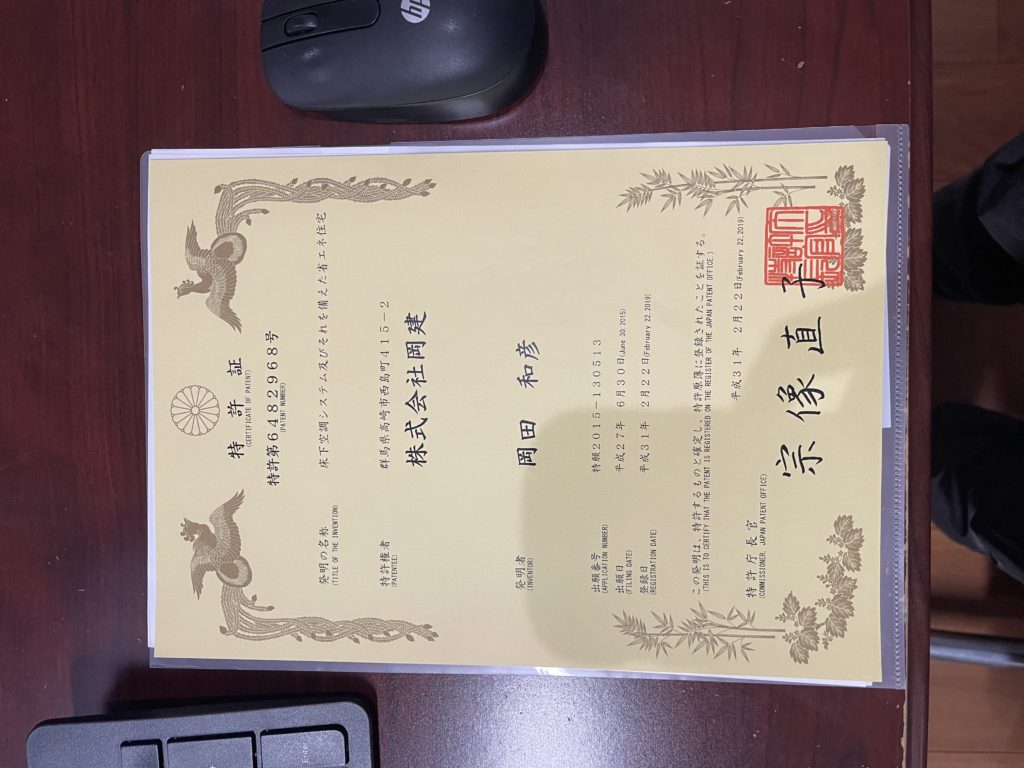 特許証
(CERTIFICATE OF PATENT)
特許第6482968号
(PATENT NUMBER)
発明の名称 床下空調システム及びそれを備えた省エネ住宅
(TITLE OF THE INVENTION)
特許権者 群馬県高崎市西島町415-2
(PATENTEE)
株式会社岡建
発明者 岡田 和彦
(INVENTOR)
出願番号 特願2015-130513
(APPLICATION NUMBER)
出願日 平成27年 6月30日(June 30, 2015)
(FILING DATE)
登録日 平成31年 2月22日(February 22, 2019)
(REGISTRATION DATE)
この発明は、特許するものと確定し、特許原簿に登録されたことを証する。
(THIS IS TO CERTIFY THAT THE PATENT IS REGISTERED ON THE REGISTER OF THE JAPAN PATENT OFFICE.)
平成31年 2月22日(February 22, 2019)
特許庁長官
(COMMISSIONER, JAPAN PATENT OFFICE)
宗像直子
hp
Enter